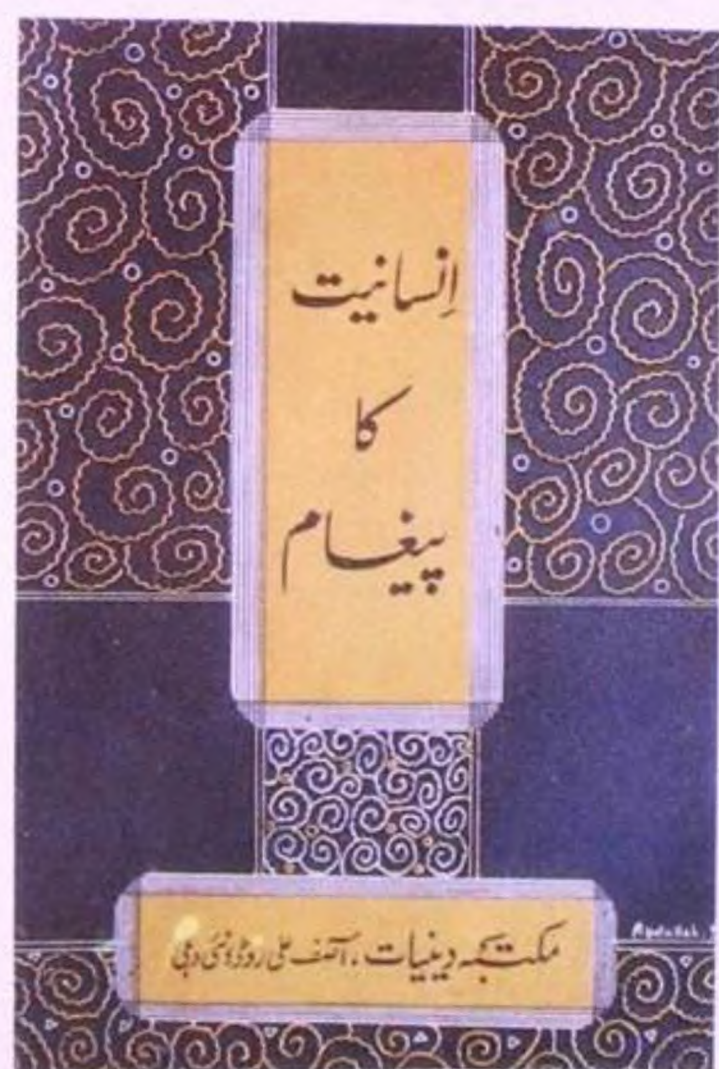 اِنسانیت
کا
پیغام
مکتبہ دینیات، آصف علی روڈ، نئی دہلی
Abdullah